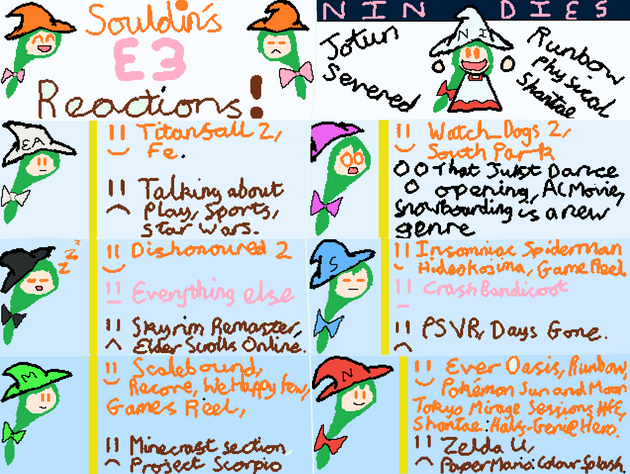 Souldin's
E3
Reactions!
NINDIES
NI
Jotun
Severed
Runbow
Physical
Shantae
EA
:) Titanfall 2,
Fe.
:( Talking about
Play, Sports,
Star Wars.
:) Watch_Dogs 2,
South Park
That Just Dance
opening, AC Movie,
snowboarding is a new
genre
z z z
:) Dishonoured 2
:| Everything else
:( Skyrim Remaster,
Elder Scrolls Online.
S
:) Insomniac Spiderman
Hideo Kojima, Game Reel
:| Crash Bandicoot
:( PSVR, Days Gone.
M
:) Scalebound,
Recore, We Happy Few,
Games Reel,
:( Minecraft section
Project Scorpio
N
:) Ever Oasis, Runbow,
Pokémon Sun and Moon
Tokyo Mirage Sessions #FE,
Shantae: Half-Genie Hero.
:( Zelda U,
Paper Mario: Colour Splash